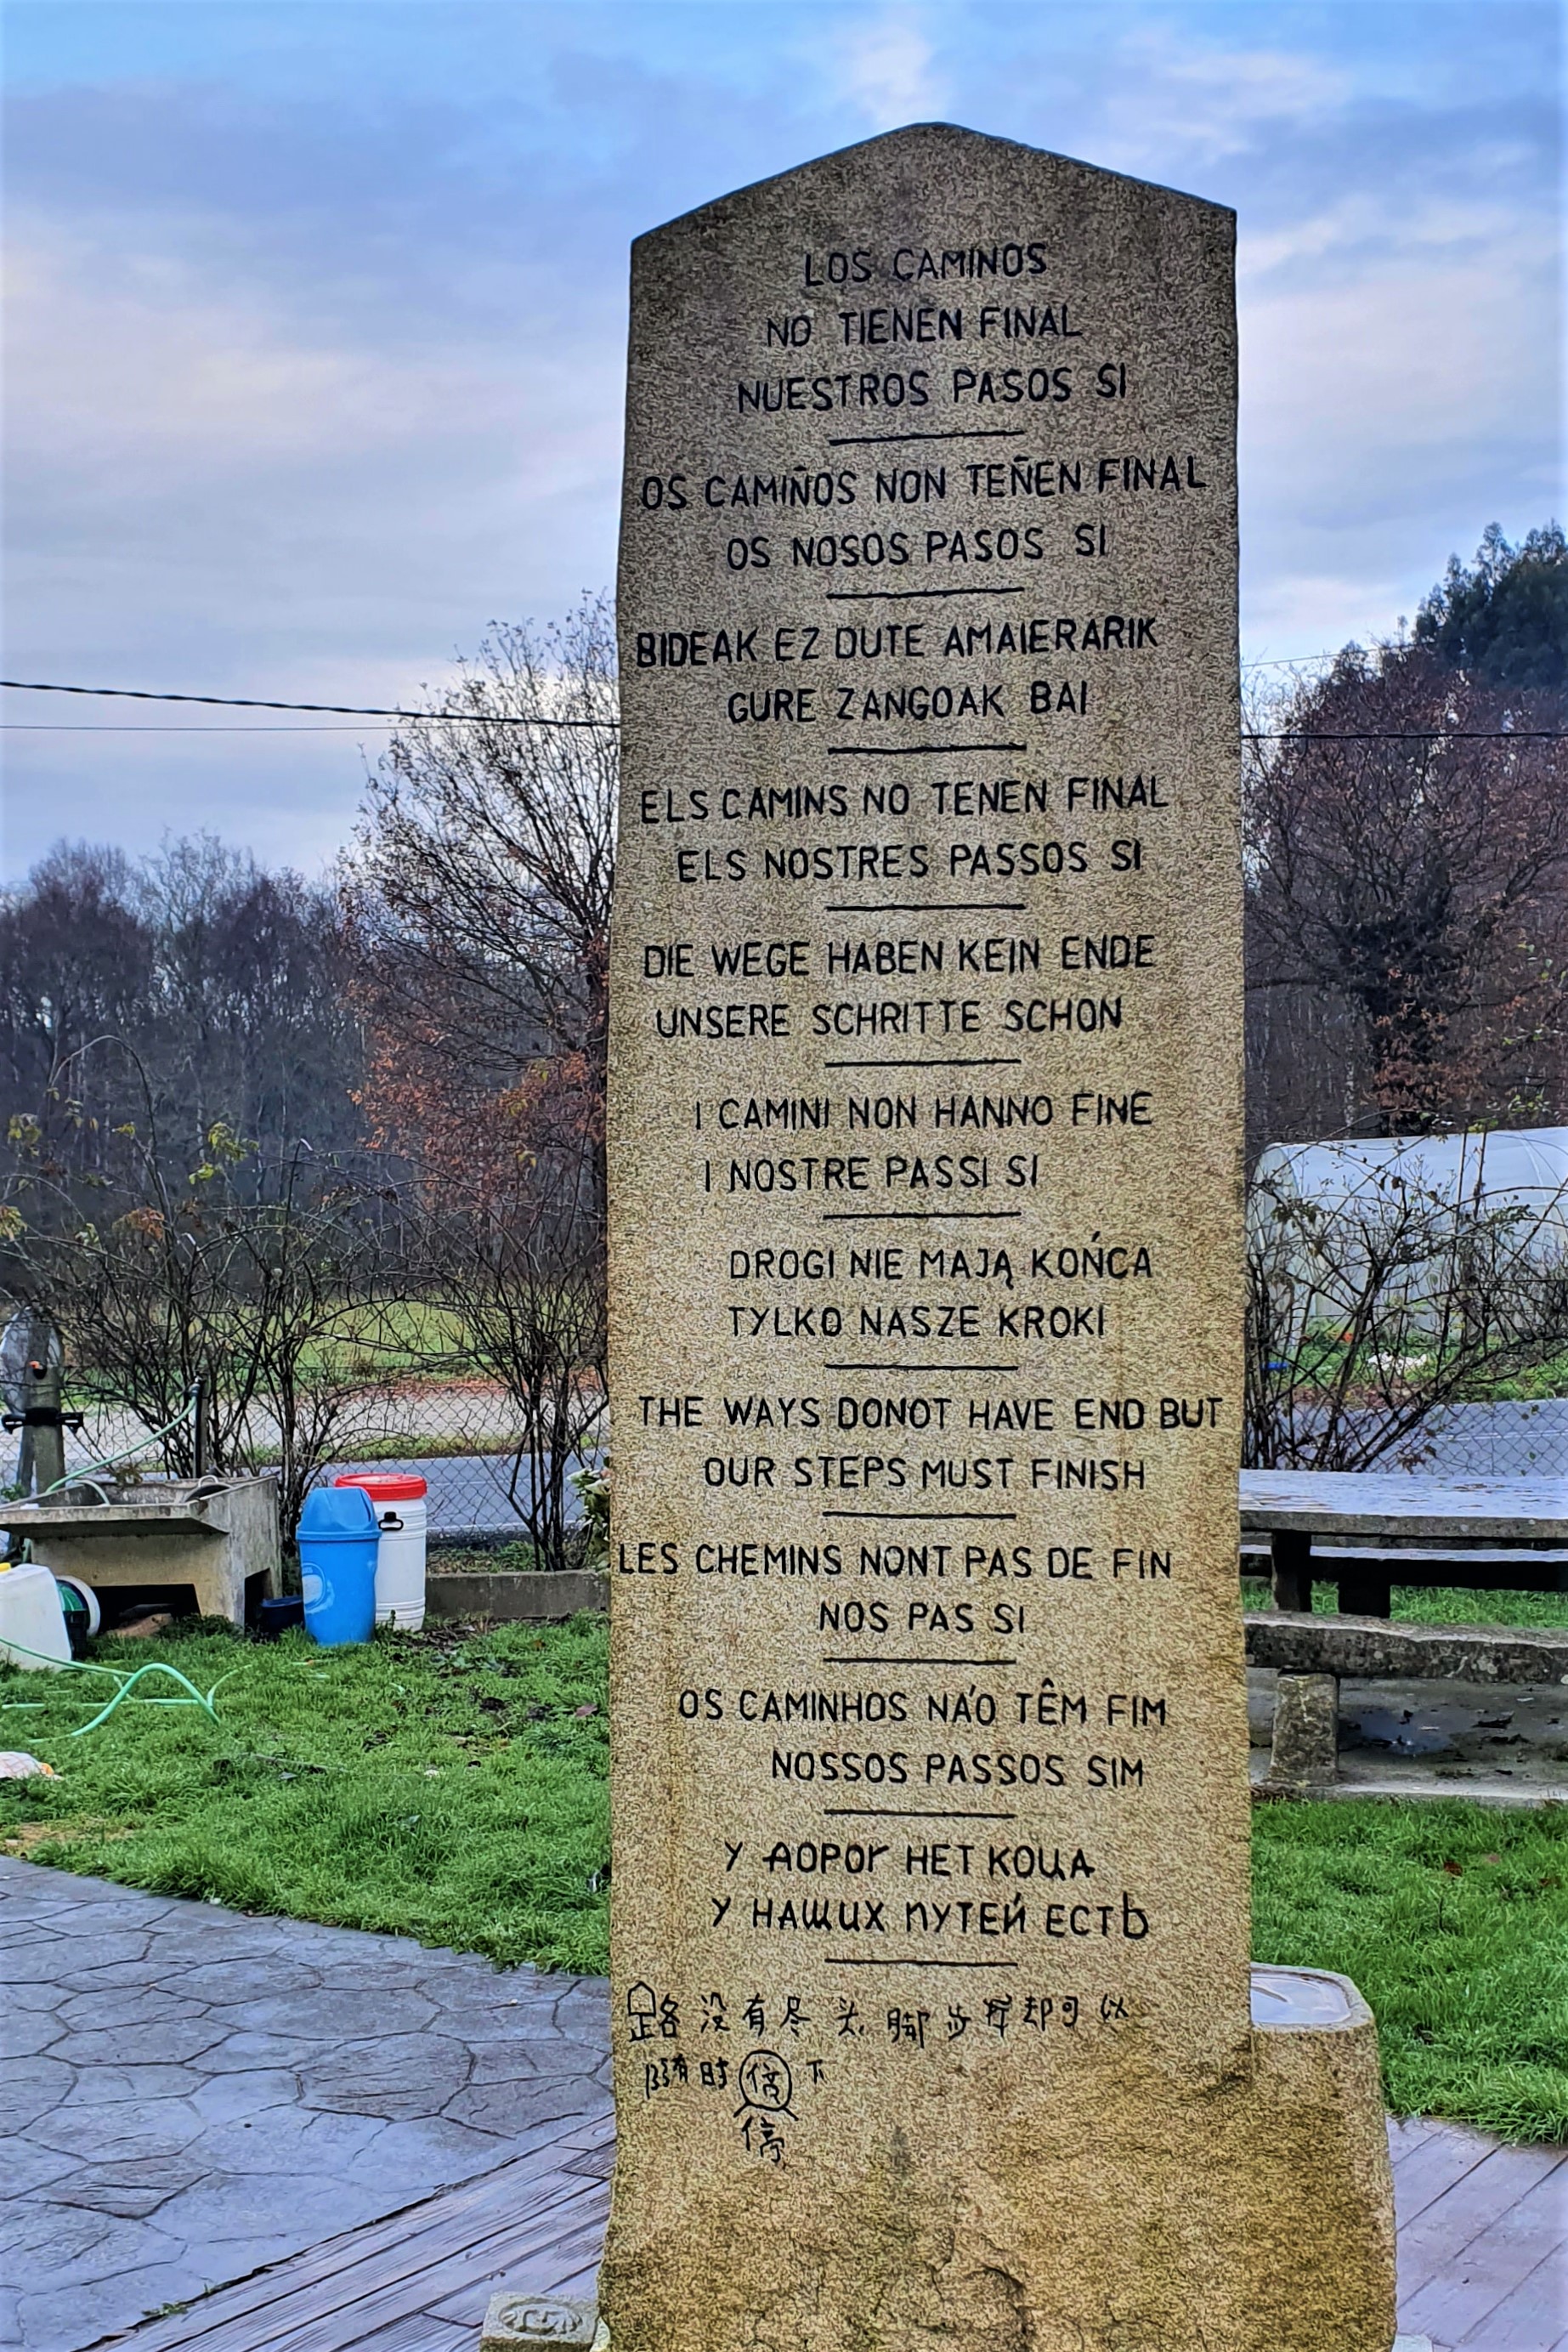 LOS CAMINOS
NO TIENEN FINAL
NUESTROS PASOS SI
OS CAMIÑOS NON TEÑEN FINAL
OS NOSOS PASOS SI
BIDEAK EZ DUTE AMAIERARIK
GURE ZANGOAK BAI
ELS CAMINS NO TENEN FINAL
ELS NOSTRES PASSOS SI
DIE WEGE HABEN KEIN ENDE
UNSERE SCHRITTE SCHON
I CAMINI NON HANNO FINE
I NOSTRE PASSI SI
DROGI NIE MAJĄ KOŃCA
TYLKO NASZE KROKI
THE WAYS DONOT HAVE END BUT
OUR STEPS MUST FINISH
LES CHEMINS NONT PAS DE FIN
NOS PAS SI
OS CAMINHOS NÁO TÊM FIM
NOSSOS PASSOS SIM
У АОРОГ НЕТ КОЦА
У НАЩИХ ПУТЕЙ ЕСТЬ
路没有尽头脚步却可以
随时下
停